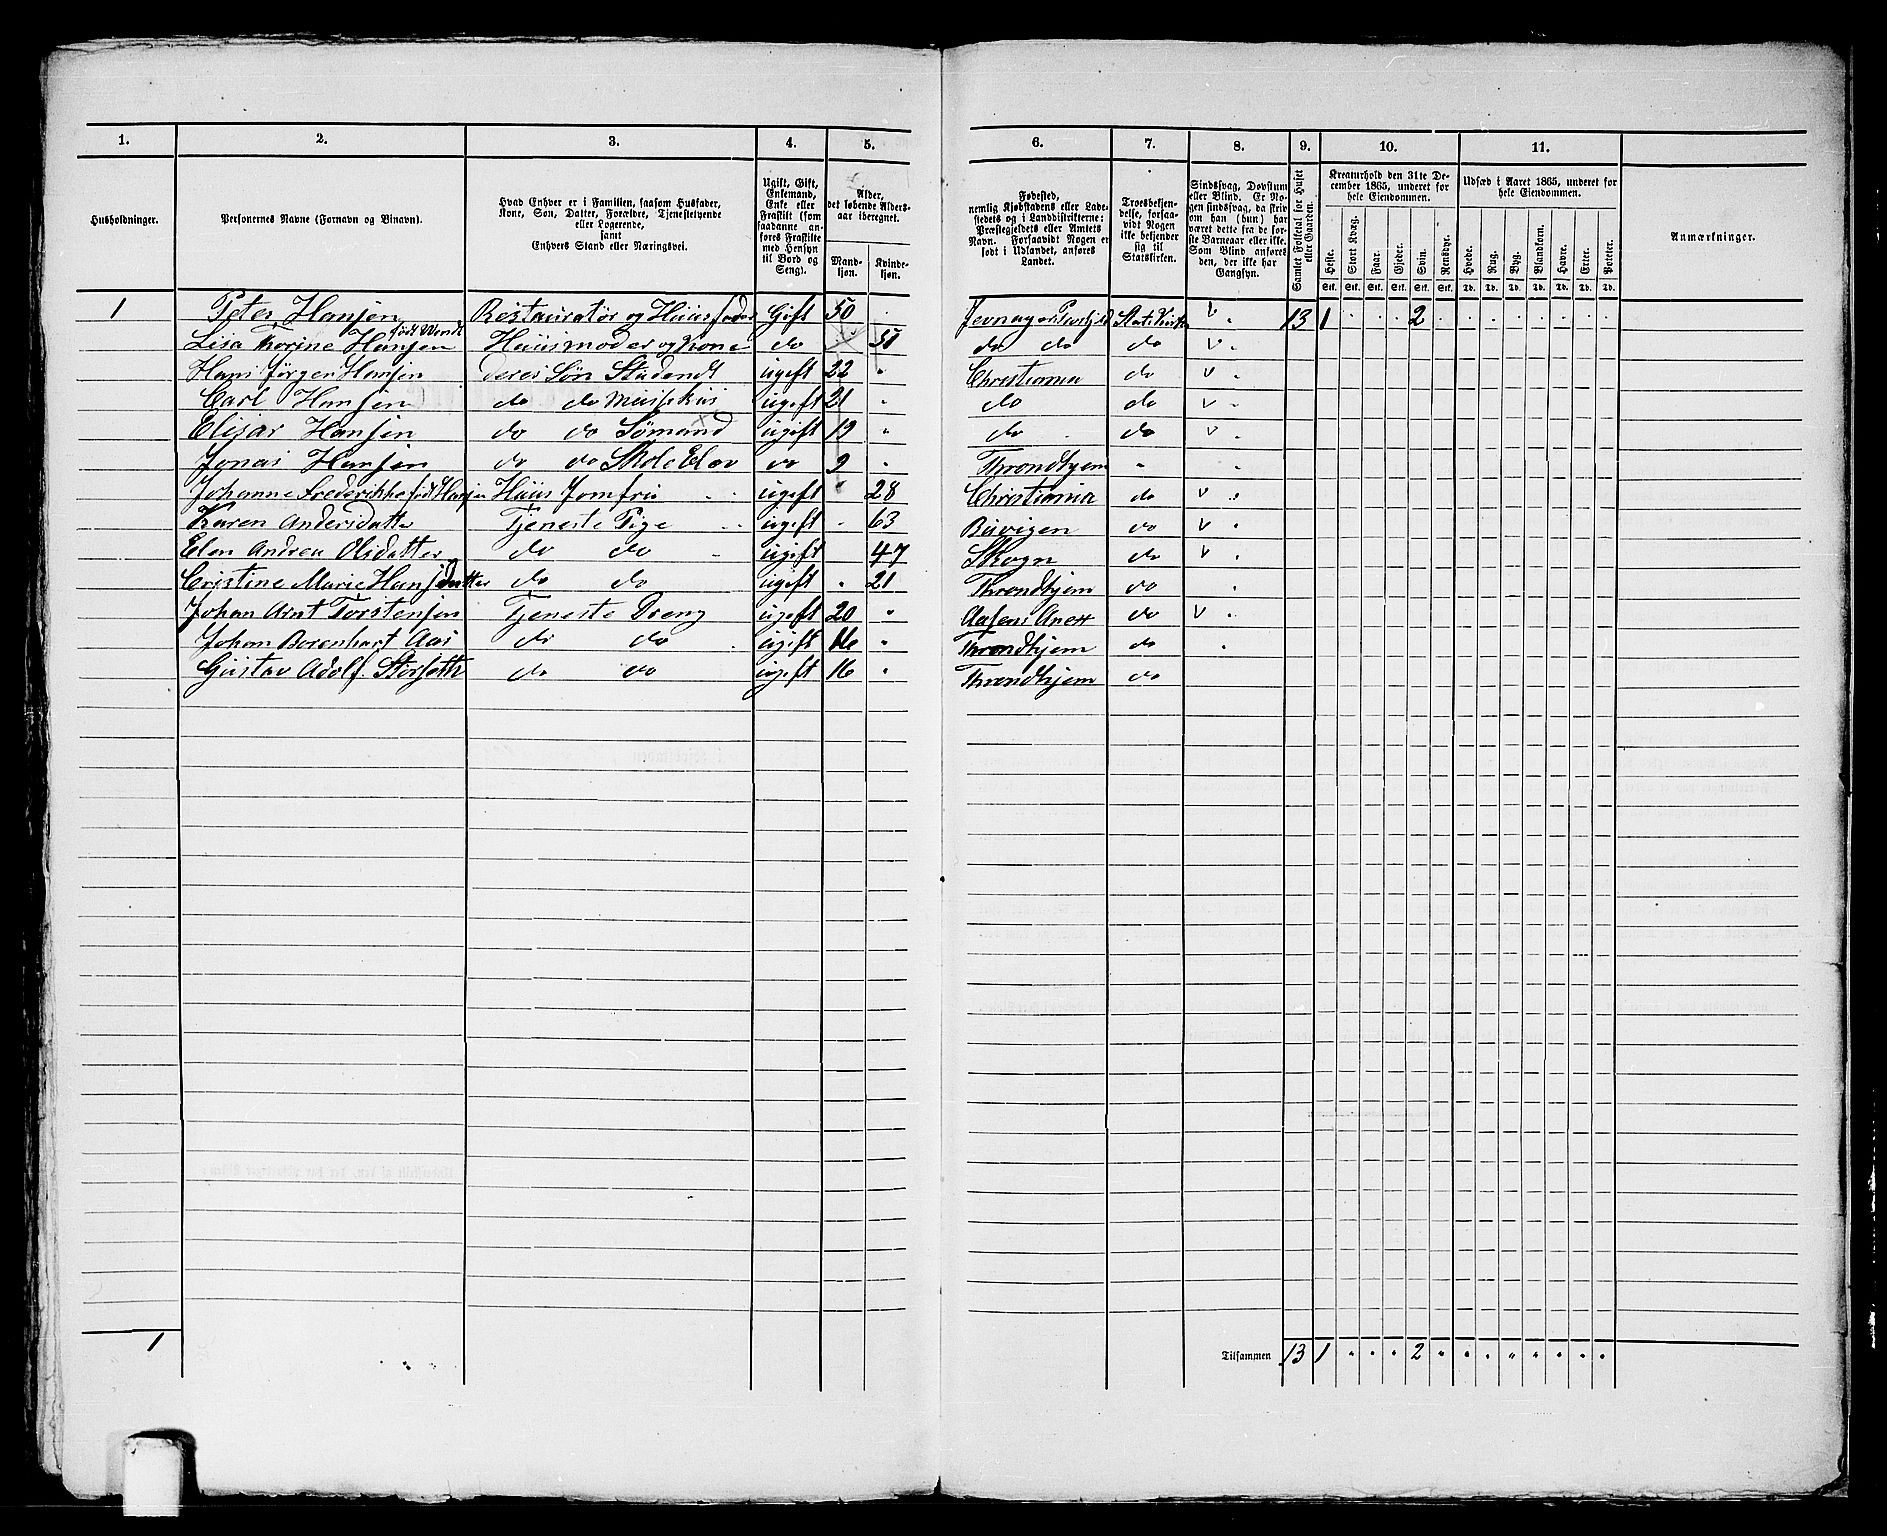 1. 2. 3. 4. 5. 6. 7. 8. 9. 10. 11.
Husholdninger.
Personernes Navne (Fornavn og Binavn).
Hvad Enhver er i Familien, saasom Husfader, Kone, Søn, Datter, Forældre, Tjenestetyende eller Logerende, samt Enhvers Stand eller Næringsvei.
Ugift, Gift, Enkemand, Enke eller Fraskilt (som saadanne anføres Fraskilte med Hensyn til Bord og Seng).
Alder, det løbende Aldersaar iberegnet.
Mandkjøn. Kvindekjøn.
Fødested, nemlig Kjøbstadens eller Ladestedets og i Landdistrikterne: Præstegjeldets eller Amtets Navn. Forsaavidt Nogen er født i Udlandet, anføres Landet.
Troesbekjendelse, forsaavidt Nogen ikke bekjender sig til Statskirken.
Sindssvag, Døvstum eller Blind. Er Nogen sindssvag, da skrives om han (hun) har været dette fra de første Barneaar eller ikke. Som Blind anføres den, der ikke har Gangsyn.
Samlet Folketal for Huset eller Gaarden.
Kreaturhold den 31te December 1865, underet for hele Eiendommen.
Heste. Stort Kvæg. Faar. Gjeder. Svin. Rensdyr.
Stk. Stk. Stk. Stk. Stk. Stk.
Udsæd i Aaret 1865, underet for hele Eiendommen.
Hvede. Rug. Byg. Blandkorn. Havre. Erter. Poteter.
Td. Td. Td. Td. Td. Td. Td.
Anmærkninger.
1 Peter Hansen Restauratør og Huusfader Gift 50 Jevnager Præstegjeld Stats Kirken v 13 1 2
født Wendt
Lisa Torine Hansen Huusmoder og Kone do 51 do do do v
Hans Jørgen Hansen deres Søn Student ugift 22 " Christiania do v
Carl Hansen do do Mussikus ugift 21 " do do v
Elisar Hansen do do Sømand ugift 19 " do do v
Jonas Hansen do do Skole Elev do 9 " Throndhjem "
Johanne Frederikke født Hansen Huus Jomfru ugift " 28 Christiania do v
Karen Andersdatter Tjeneste Pige ugift 63 Buvigen do v
Elen Andrea Olsdatter do do ugift 47 Skogn do v
Cristine Marie Hansdatter do do ugift " 21 Throndhjem do
Johan Arnt Torstensen Tjeneste Dreng ugift 20 " Aasens Anex do v
Johan Berenhart Aas do do ugift 16 " Throndhjem do
Gustav Adolf Storseth do do ugift 16 " Throndhjem do
1 Tilsammen 13 1 " " " 2 " " " " " " " "